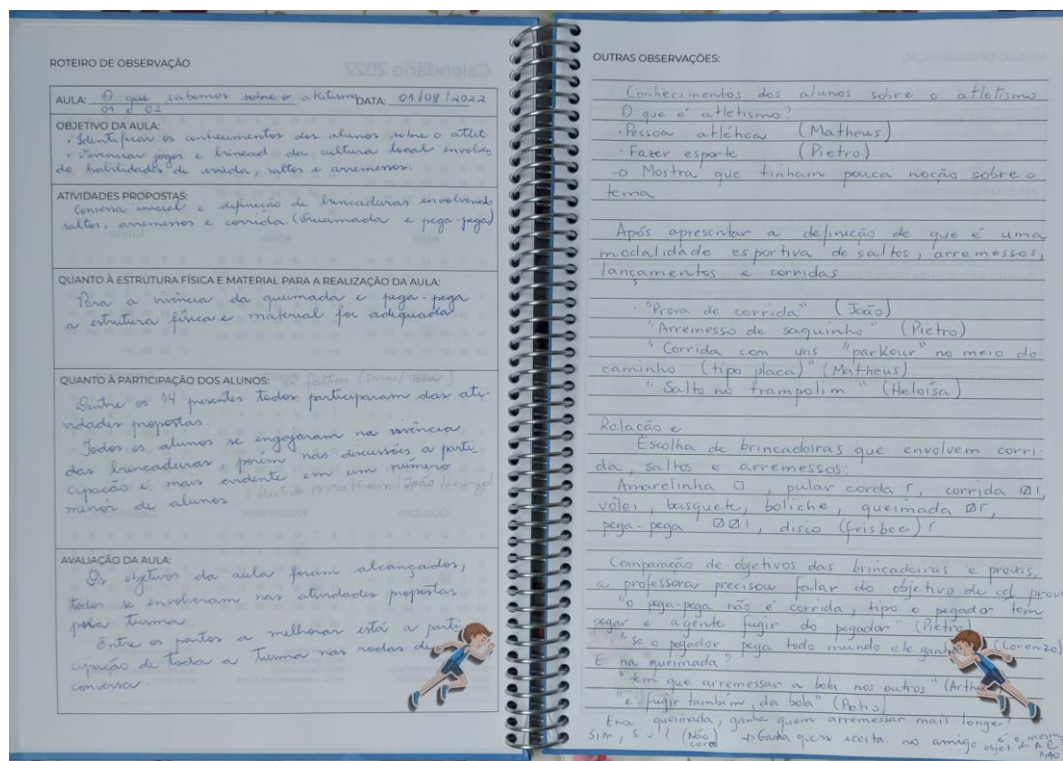 ROTEIRO DE OBSERVAÇÃO
Calendário 2022
AULA: O que sabemos sobre o atletismo DATA: 01/08/2022
01 e 02
OBJETIVO DA AULA:
· Identificar os conhecimentos dos alunos sobre o atlet.
· Vivenciar jogos e brincad. da cultura local envolven
do habilidades de corrida, saltos e arremessos.
ATIVIDADES PROPOSTAS:
Conversa inicial e definição de brincadeiras envolvendo
saltos, arremessos e corrida (queimada e pega-pega)
QUANTO À ESTRUTURA FÍSICA E MATERIAL PARA A REALIZAÇÃO DA AULA:
Para a vivência da queimada e pega-pega
a estrutura física e material foi adequada.
QUANTO À PARTICIPAÇÃO DOS ALUNOS: faltas
Dentre os 14 presentes todos participaram das ati-
vidades propostas.
Todos os alunos se engajaram na vivência
das brincadeiras, porém nas discussões a parti
cipação é mais evidente em um número
menor de alunos.
AVALIAÇÃO DA AULA:
Os objetivos da aula foram alcançados,
todos se envolveram nas atividades propostas
pela turma.
Entre os pontos a melhorar está a parti
cipação de toda a turma nas rodas de
conversa.
OUTRAS OBSERVAÇÕES:
Conhecimentos dos alunos sobre o atletismo
O que é atletismo?
· Pessoa atlética (Matheus)
· Fazer esporte (Pietro)
→ Mostra que tinham pouca noção sobre o
tema
Após apresentar a definição de que é uma
modalidade esportiva de saltos, arremessos,
lançamentos e corridas
· "Prova de corrida" (João)
"Arremesso de saquinho" (Pietro)
"Corrida com uns "parkour" no meio do
caminho (tipo placa)" (Matheus)
"Salto no trampolim" (Heloísa)
Relação e
Escolha de brincadeiras que envolvem corri-
da, saltos e arremessos:
Amarelinha, pular corda, corrida,
vôlei, basquete, boliche, queimada,
pega-pega, disco (frisbee)
Comparação de objetivos das brincadeiras e provas,
a professora precisou falar do objetivo de cd prova
"o pega-pega não é corrida, tipo o pegador tem
pegar e agente fugir do pegador" (Pietro)
"se o pegador pega todo mundo ele ganha" (Lorenzo)
E na queimada?
"tem que arremessar a bola nos outros" (Arthur
"e fugir também, da bola" (Pietro)
E na queimada, ganha quem arremessar mais longe?
Sim, (Não) → Ganha quem acerta no amigo é o mesmo
objet
NÃO